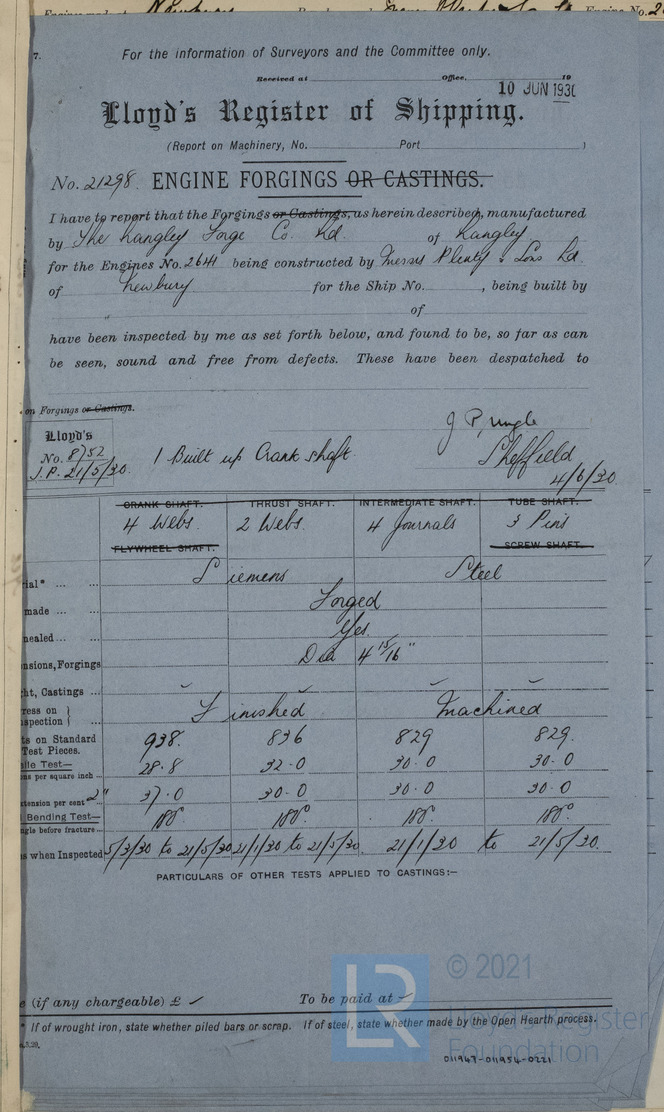 7.
For the information of Surveyors and the Committee only.
Received at Office, 19
10 JUN 1930
Lloyd's Register of Shipping.
(Report on Machinery, No. Port )
No. 21298. ENGINE FORGINGS OR CASTINGS.
I have to report that the Forgings or Castings, as herein described, manufactured
by The Langley Forge Co. Ld. of Langley
for the Engines No. 2641 being constructed by Messrs Plenty & Sons Ld.
of Newbury for the Ship No. , being built by
" of
have been inspected by me as set forth below, and found to be, so far as can
be seen, sound and free from defects. These have been despatched to
on Forgings or Castings.
Lloyd's
No. 8752
J.P. 21/5/30.
1 Built up Crank shaft.
J Pringle
Sheffield
4/6/30
CRANK SHAFT. THRUST SHAFT. INTERMEDIATE SHAFT. TUBE SHAFT.
4 Webs. 2 Webs. 4 Journals 3 Pins
FLYWHEEL SHAFT. SCREW SHAFT.
ial* ... ... Siemens Steel
made ... Forged
nealed ... ... Yes.
nsions, Forgings Dia 4 15/16"
ht, Castings ...
ress on }
spection } ... Finished Machined
ts on Standard
Test Pieces. 938. 836 829 829.
ile Test—
ns per square inch ... 28.8 32.0 30.0 30.0
xtension per cent 2" 37.0 30.0 30.0 30.0
Bending Test—
ngle before fracture ... 180° 180° 180° 180°
s when Inspected 5/3/30 to 21/5/30 21/1/30 to 21/5/30. 21/1/30 to 21/5/30.
PARTICULARS OF OTHER TESTS APPLIED TO CASTINGS:—
e (if any chargeable) £ To be paid at
* If of wrought iron, state whether piled bars or scrap. If of steel, state whether made by the Open Hearth process.
© 2021
LR
Lloyd's Register
Foundation
011947-011954-0221